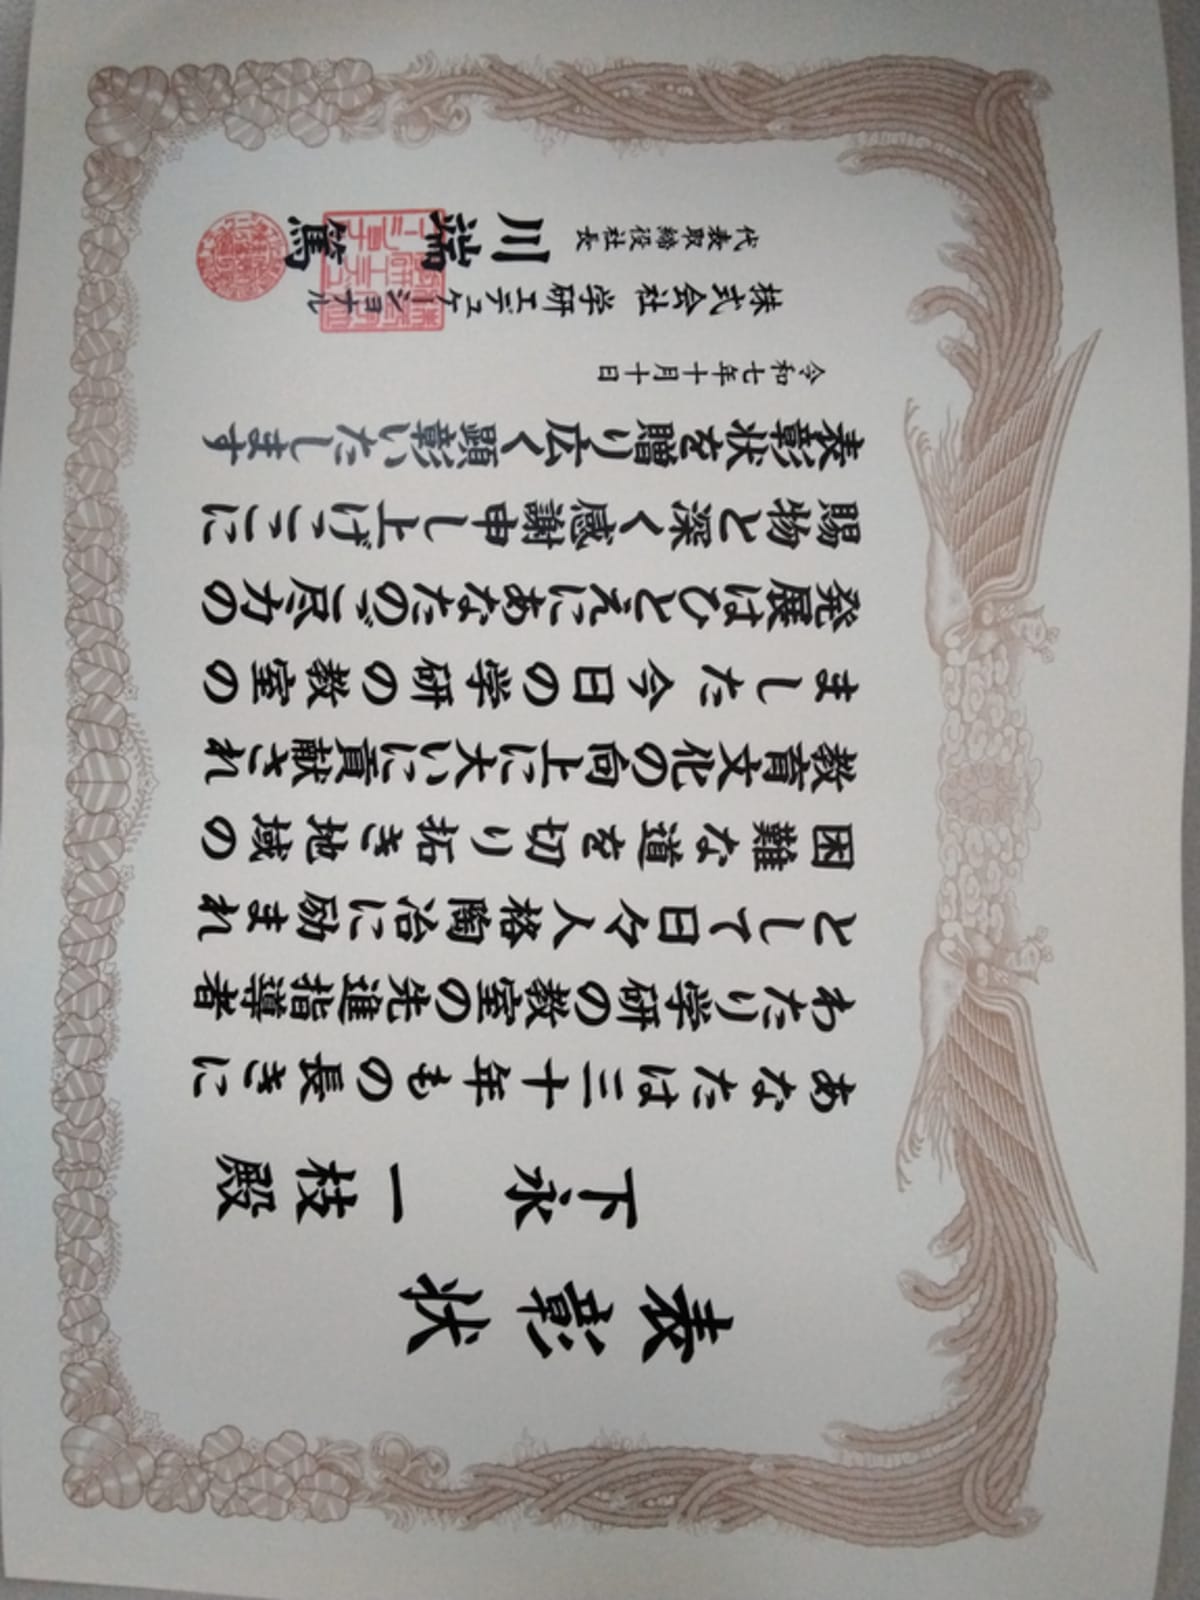 表彰状
下永 一枝 殿
あなたは三十年もの長きに
わたり学研の教室の先進指導者
として日々人格陶冶に励まれ
困難な道を切り拓き地域の
教育文化の向上に大いに貢献され
ました今日の学研の教室の
発展はひとえにあなたのご尽力の
賜物と深く感謝申し上げここに
表彰状を贈り広く顕彰いたします
令和七年十月十日
株式会社 学研エデュケーショナル
代表取締役社長 川端 篤